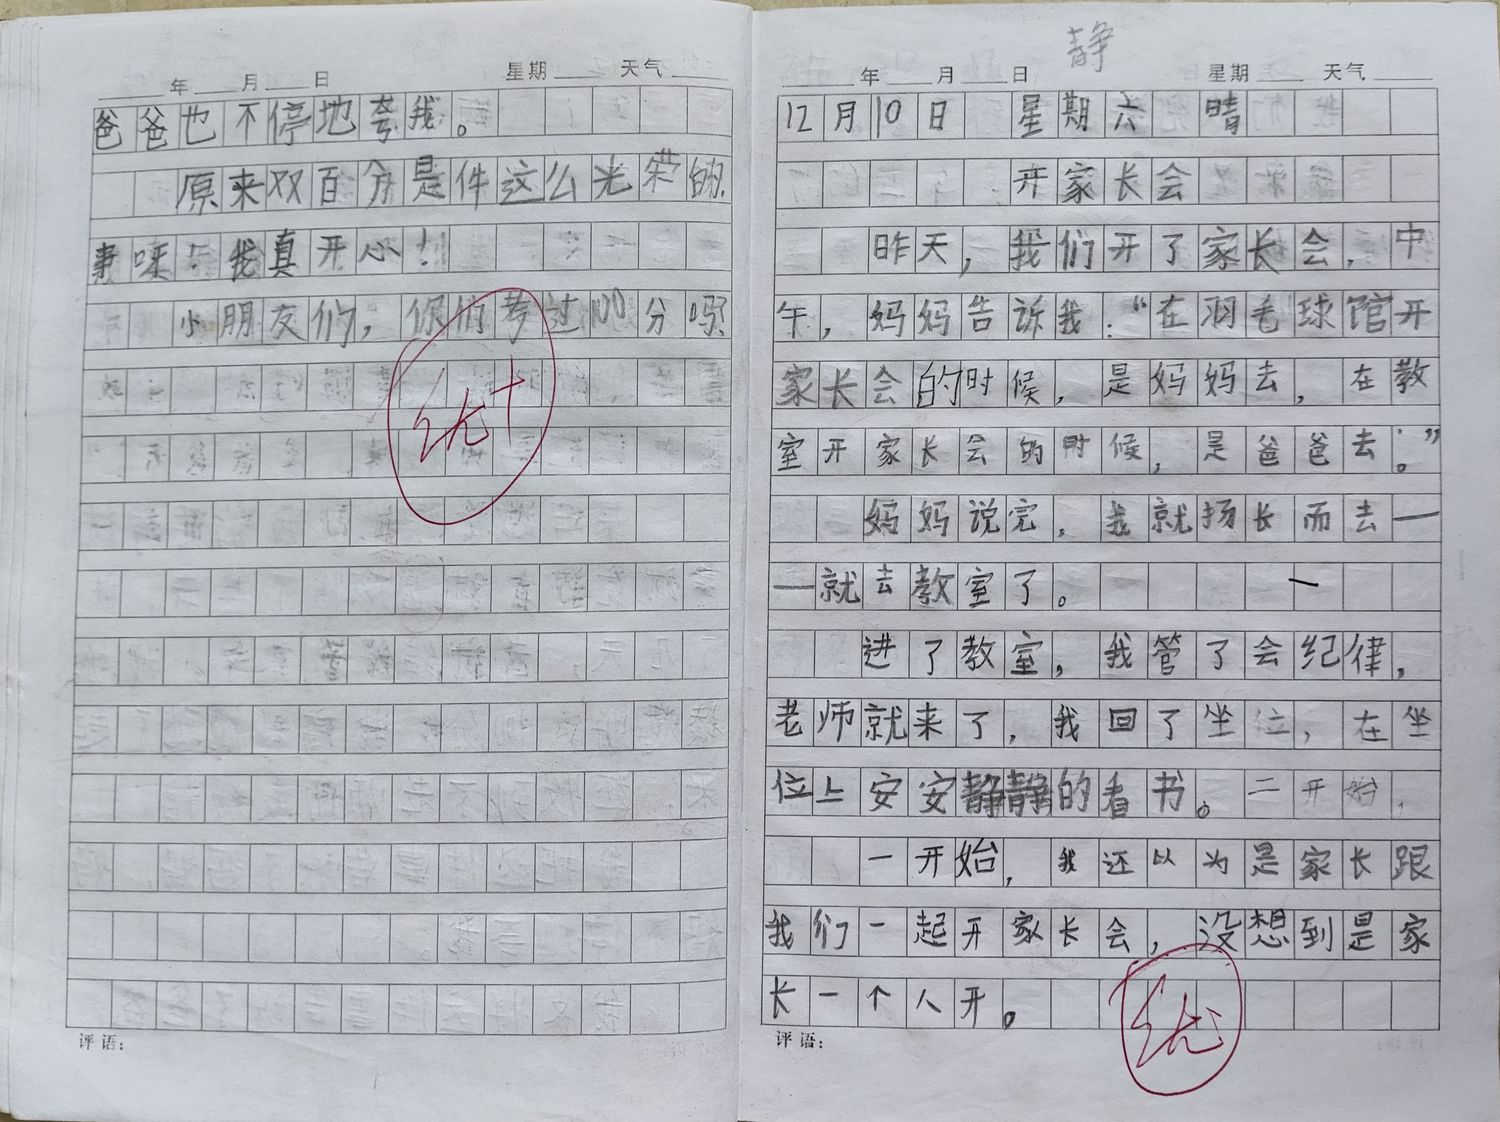 年 月 日 星期 天气
爸爸也不停地夸我。
原来双百分是件这么光荣的
事呀！我真开心！
小朋友们，你们考过100分吗？
优+
评语：
静
年 月 日 星期 天气
12月10日 星期六 晴
开家长会
昨天，我们开了家长会，中
午，妈妈告诉我：“在羽毛球馆开
家长会的时候，是妈妈去，在教
室开家长会的时候，是爸爸去。”
妈妈说完，我就扬长而去—
—就去教室了。
进了教室，我管了会纪律，
老师就来了，我回了坐位，在坐
位上安安静静的看书。二开始，
一开始，我还以为是家长跟
我们一起开家长会，没想到是家
长一个人开。
优
评语：